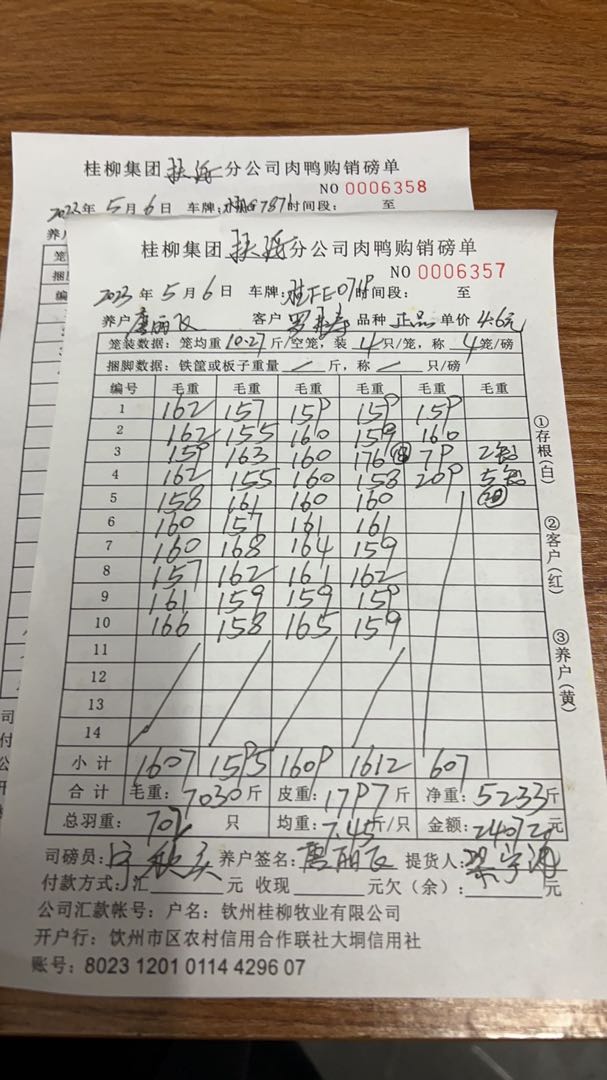 桂柳集团 分公司肉鸭购销磅单
NO 0006358
2023年5月6日 车牌: 时间段: 至
养户
桂柳集团 分公司肉鸭购销磅单
NO 0006357
2023年5月6日 车牌: 时间段: 至
养户 唐丽飞 客户 品种 正品 单价 4.6元
笼装数据: 笼均重10.27斤/空笼, 装4只/笼, 称4笼/磅
捆脚数据: 铁筐或板子重量 斤, 称 只/磅
编号 毛重 毛重 毛重 毛重 毛重 毛重
1 162 157 159 159 159
2 162 155 160 159 160
3 159 163 160 176 79
4 162 155 160 158 209
5 158 161 160 160
6 160 157 161 161
7 160 168 164 159
8 157 162 161 162
9 161 159 159 159
10 166 158 165 159
11
12
13
14
小计 1607 1595 1609 1612 607
合计 毛重:7030斤 皮重:1797斤 净重:5233斤
总羽重:702只 均重:7.45斤/只 金额:24072元
司磅员: 养户签名:唐丽飞 提货人:
付款方式:汇 元 收现 元欠(余): 元
公司汇款帐号: 户名: 钦州桂柳牧业有限公司
开户行: 钦州市区农村信用合作联社大垌信用社
账号: 8023 1201 0114 4296 07
①存根(白)
②客户(红)
③养户(黄)